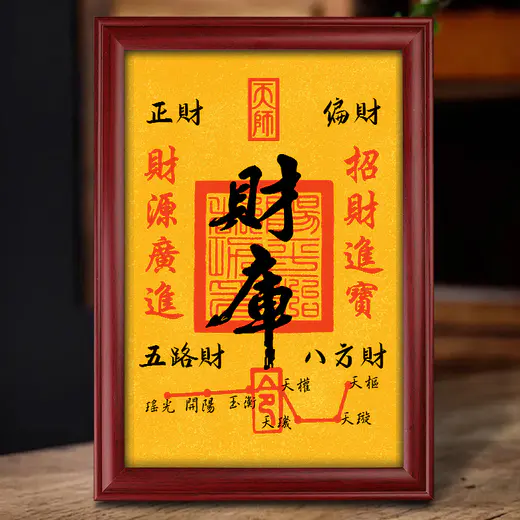 天師
正財
偏財
財源廣進
招財進寶
財庫
五路財
八方財
令
天權
天樞
瑤光
開陽
玉衡
天璣
天璇